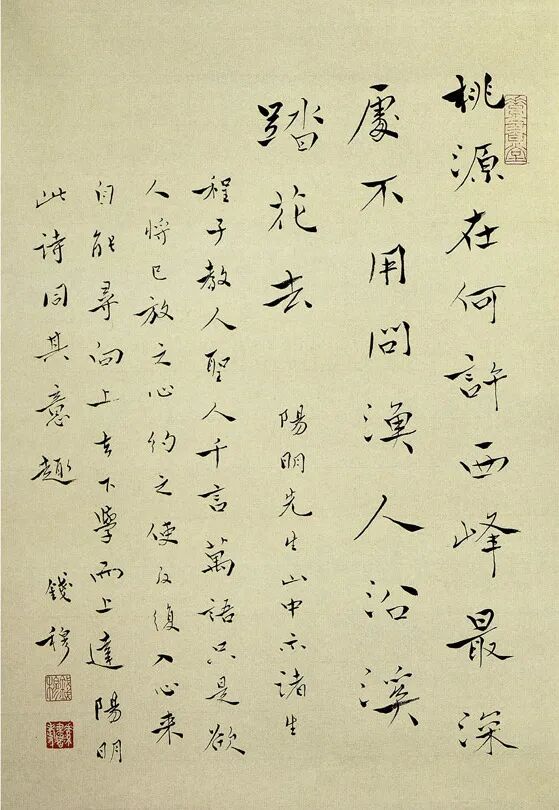 桃源在何許西峰最深
處不用問漁人沿溪
踏花去
陽明先生山中示諸生
程子教人聖人千言萬語只是欲
人將已放之心約之使反復入心来
自能尋向上去下學而上達陽明
此詩同其意趣
錢穆